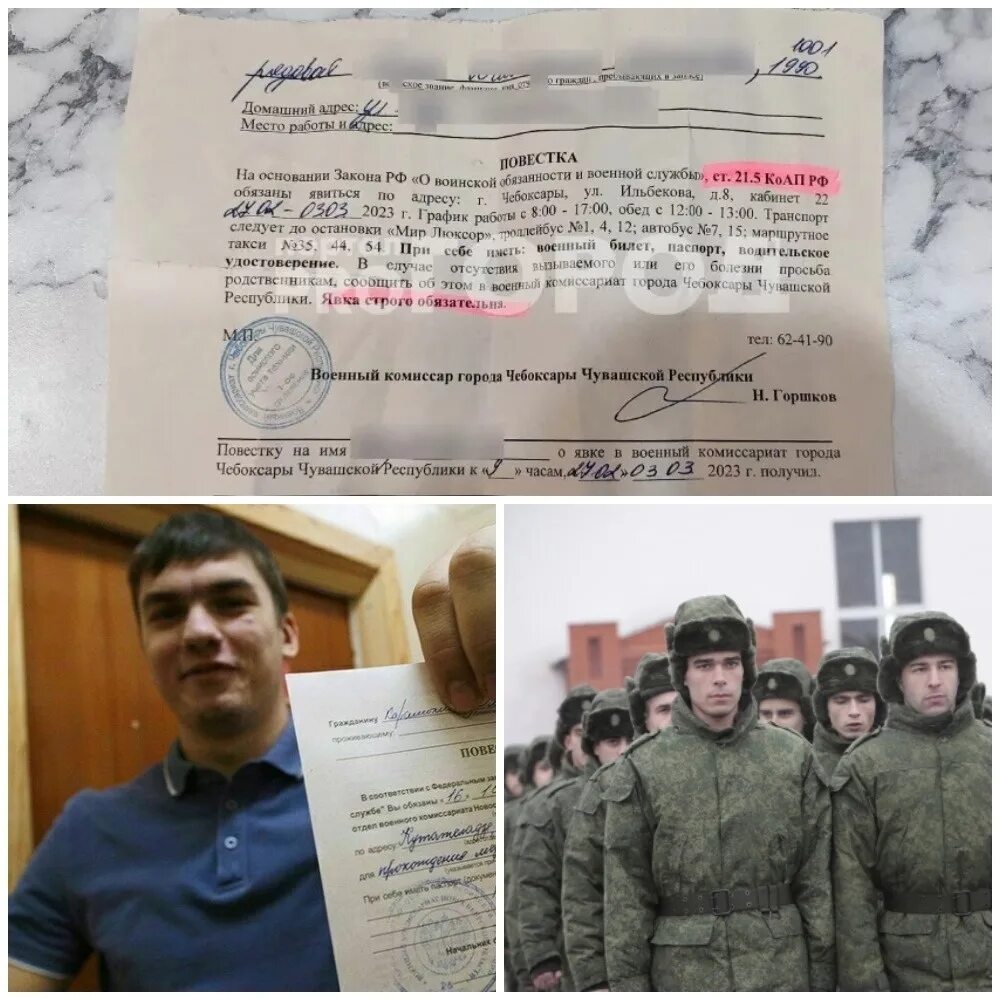 рядовой
1001
, 1990
о граждан, пребывающих в запасе)
Домашний адрес: ул
Место работы и адрес:
ПОВЕСТКА
На основании Закона РФ «О воинской обязанности и военной службы», ст. 21.5 КоАП РФ
обязаны явиться по адресу: г. Чебоксары, ул. Ильбекова, д.8, кабинет 22
27.02 - 03 03 2023 г. График работы с 8:00 - 17:00, обед с 12:00 - 13:00. Транспорт
следует до остановки «Мир Люксор», троллейбус №1, 4, 12; автобус №7, 15; маршрутное
такси №35, 44, 54. При себе иметь: военный билет, паспорт, водительское
удостоверение. В случае отсутствия вызываемого или его болезни просьба
родственникам, сообщить об этом в военный комиссариат города Чебоксары Чувашской
Республики. Явка строго обязательна.
ГОРОД
М.П.
тел: 62-41-90
Военный комиссар города Чебоксары Чувашской Республики
Н. Горшков
Повестку на имя о явке в военный комиссариат города
Чебоксары Чувашской Республики к «9 » часам, 27.02 » 03 03 2023 г. получил.
Гражданину
проживающему:
ПОВЕ
В соответствии с Федеральным за
службе" Вы обязаны «16» 1
отдел военного комиссариата Новос
по адресу: Кутателадзе
для прохождения ме
При себе иметь паспорт (докумен
Начальник о